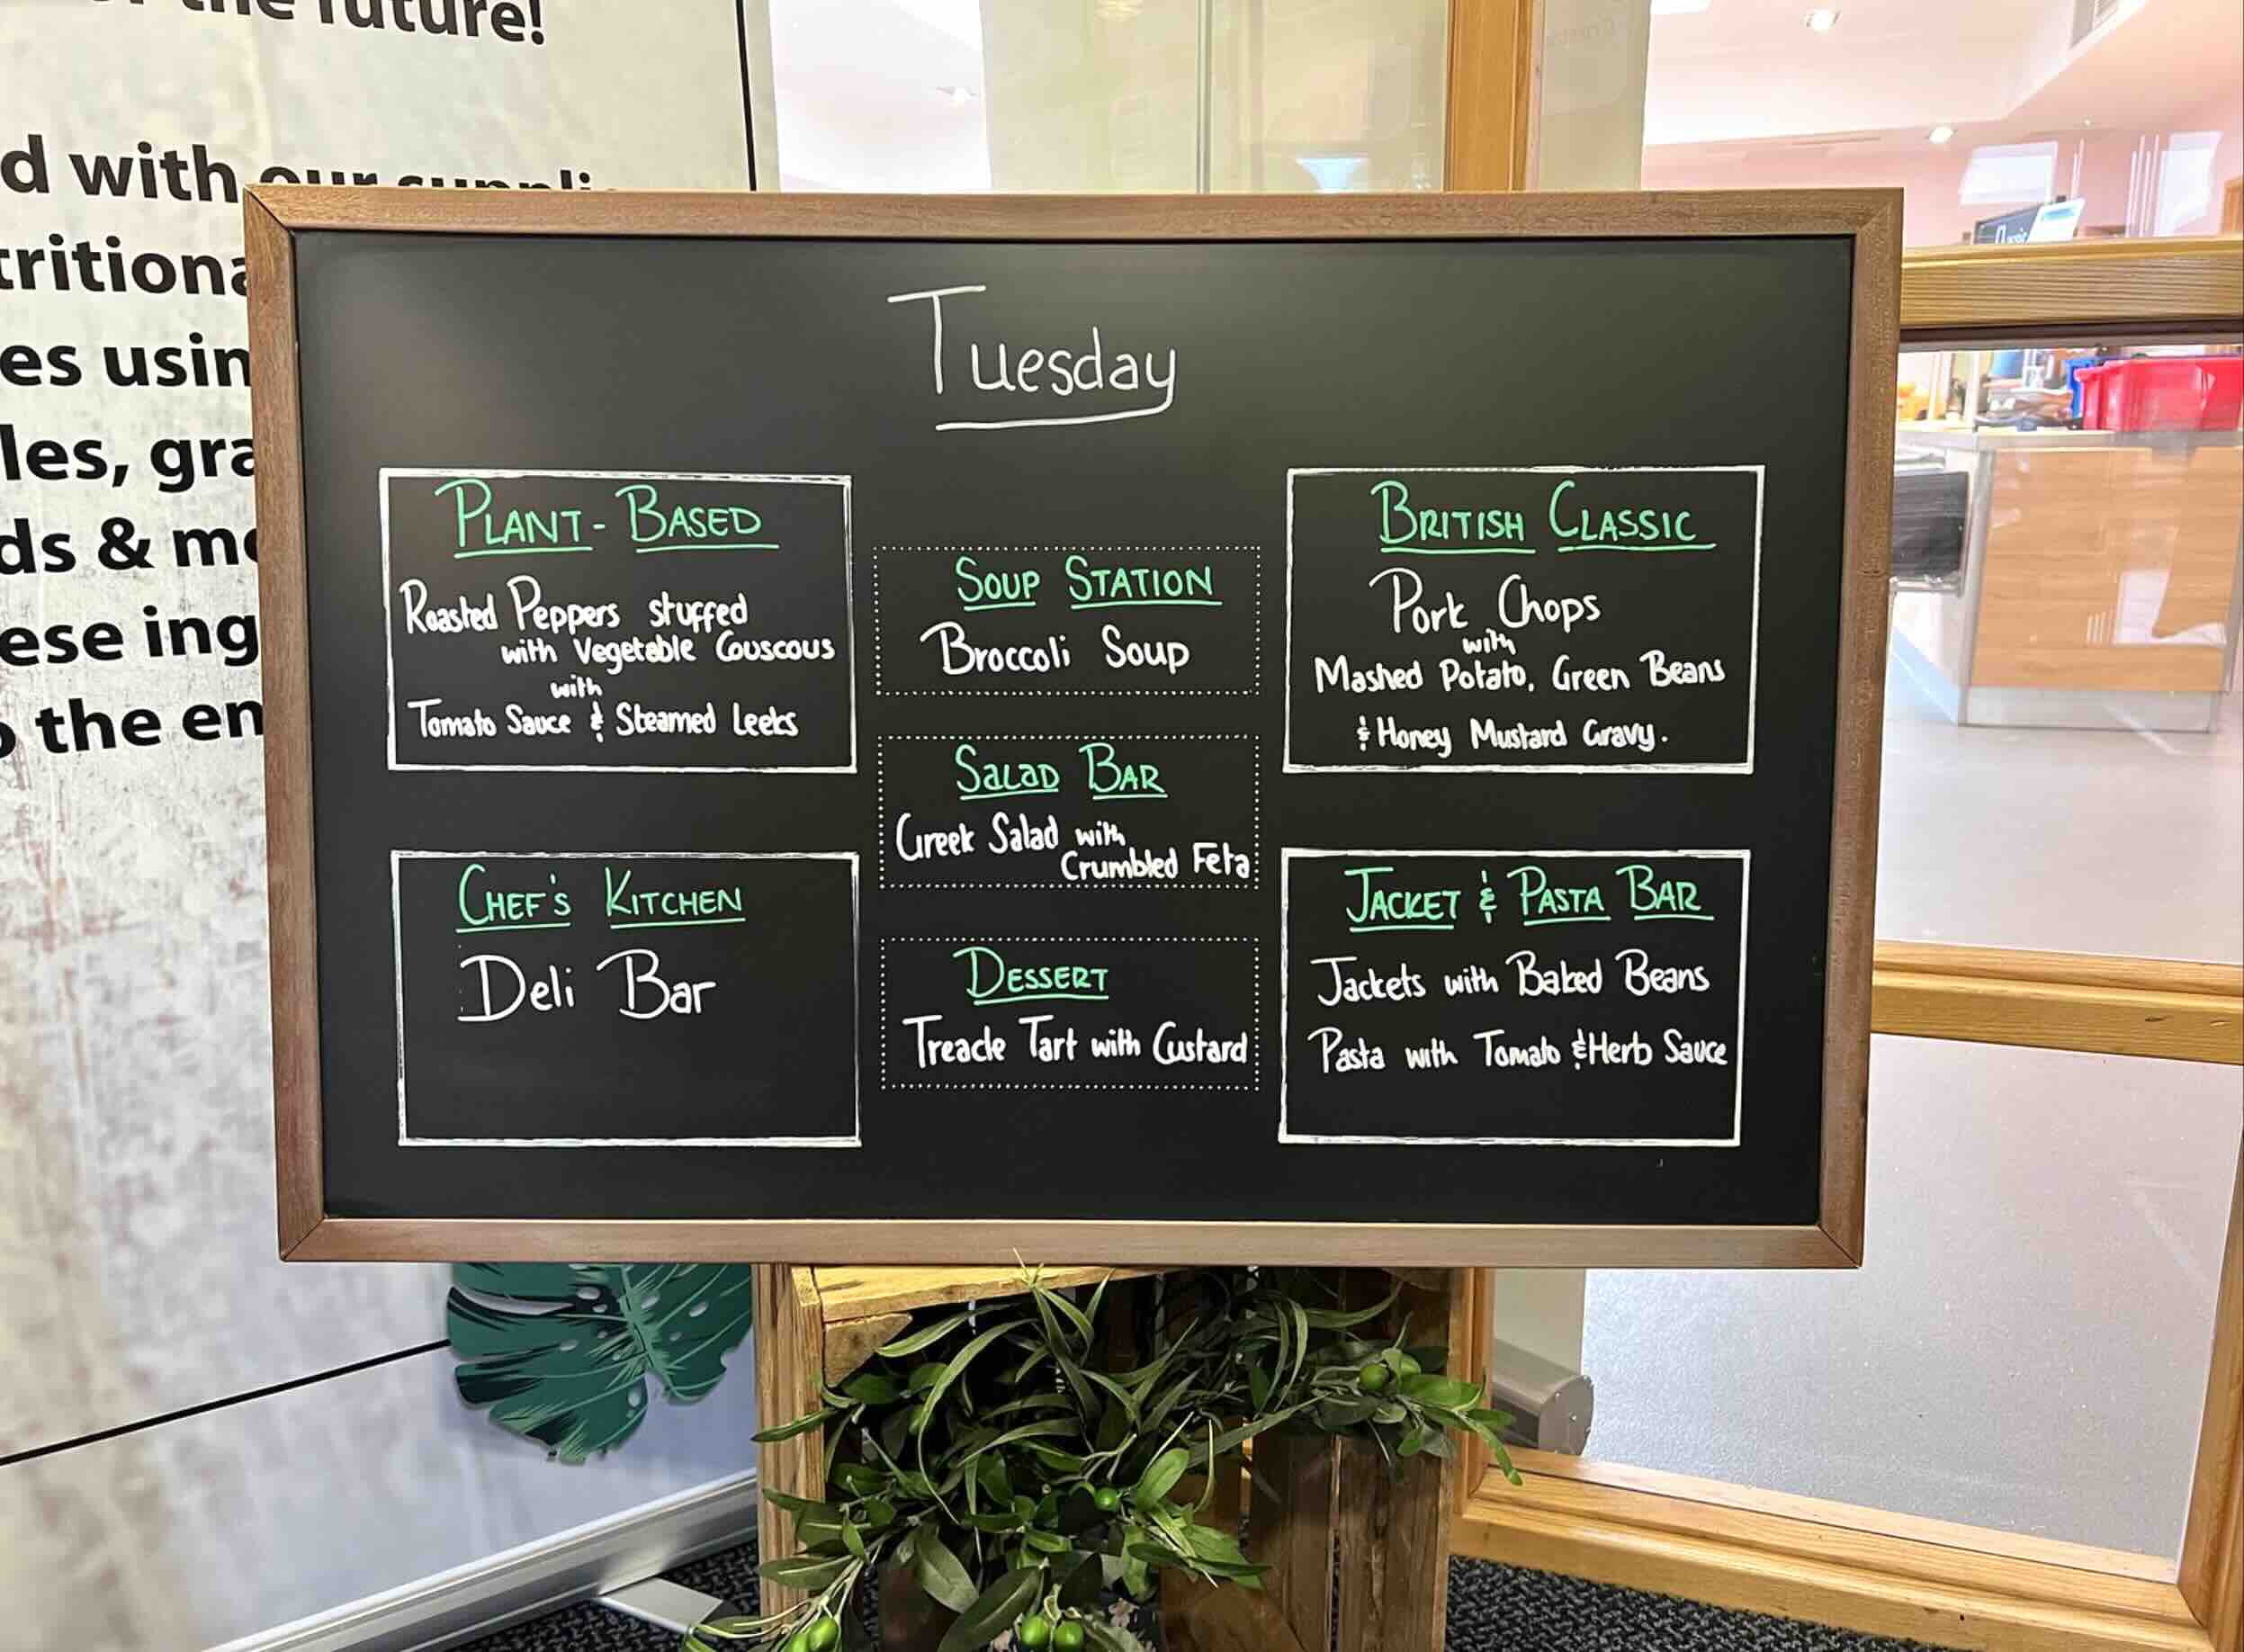 the future!
d with our
es usin
les, gra
ds &
ese ing
the en
Tuesday
PLANT-BASED
Roasted Peppers stuffed
with Vegetable Couscous
with
Tomato Sauce & Steamed Leeks
CHEF'S KITCHEN
Deli Bar
SOUP STATION
Broccoli Soup
SALAD BAR
Greek Salad with
Crumbled Feta
DESSERT
Treacle Tart with Custard
BRITISH CLASSIC
Pork Chops
with
Mashed Potato, Green Beans
& Honey Mustard Gravy.
JACKET & PASTA BAR
Jackets with Baked Beans
Pasta with Tomato & Herb Sauce